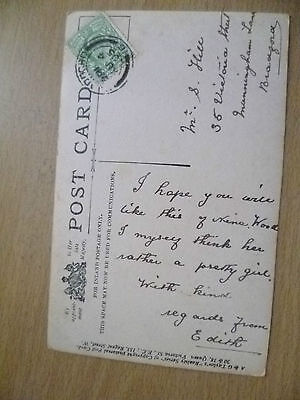 POST CARD
By
appoint-
ment
to His
Majesty.
FOR INLAND POSTAGE ONLY.
THIS SPACE MAY NOW BE USED FOR COMMUNICATIONS.
Mr S. Hill
35 Victoria Street
Manningham Lane
Bradford
I hope you will
like this of Nina Wood
I myself think her
rather a pretty girl.
With kind
regards from
Edith
A & G Taylor's "Reality Series" of Copyright National Post Card.
Queen Victoria St., E.C., 153 Regent Street, W.